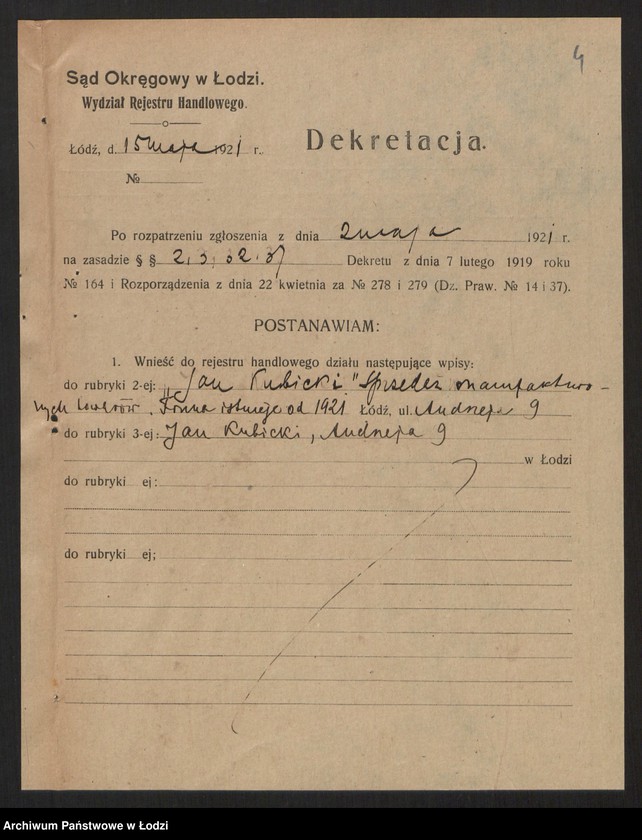 4
Sąd Okręgowy w Łodzi.
Wydział Rejestru Handlowego.
Łódź, d. 15 maja 1921 r.
Dekretacja.
№
Po rozpatrzeniu zgłoszenia z dnia 2 maja 1921 r.
na zasadzie § § 2, 3, 32, 37 Dekretu z dnia 7 lutego 1919 roku
№ 164 i Rozporządzenia z dnia 22 kwietnia za № 278 i 279 (Dz. Praw. № 14 i 37).
POSTANAWIAM:
1. Wnieść do rejestru handlowego działu następujące wpisy:
do rubryki 2-ej: „Jan Kubicki" Sprzedaż manufakturo-
wych towarów. Firma istnieje od 1921. Łódź, ul. Andrzeja 9
do rubryki 3-ej: Jan Kubicki, Andrzeja 9
w Łodzi
do rubryki ej:
do rubryki ej;
Archiwum Państwowe w Łodzi